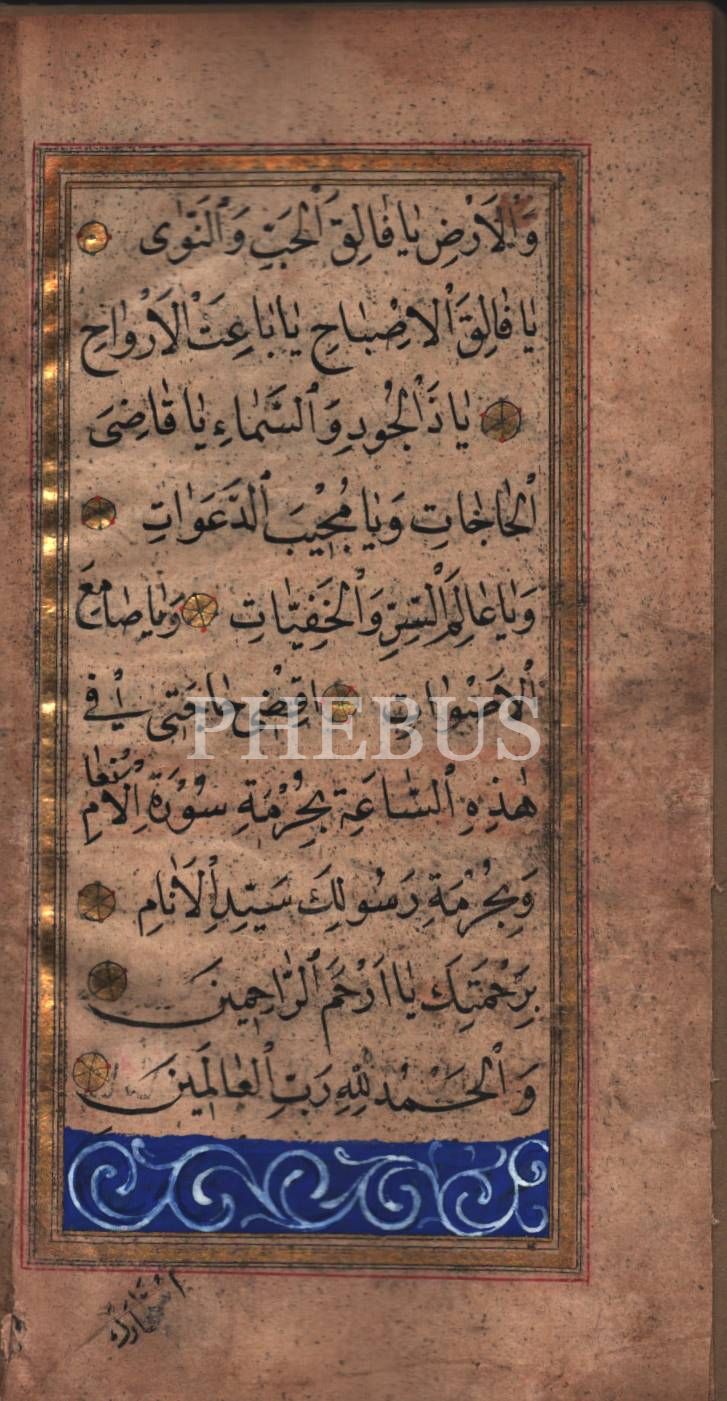 وَالْاَرْضِ يَا فَالِقَ الْحَبِّ وَالنَّوٰى
يَا فَالِقَ الْاِصْبَاحِ يَا بَاعِثَ الْاَرْوَاحِ
يَا ذَا الْجُودِ وَالسَّمَاءِ يَا قَاضِىَ
الْحَاجَاتِ وَيَا مُجِيْبَ الدَّعَوَاتِ
وَيَا عَالِمَ السِّرِّ وَالْخَفِيَّاتِ وَيَا صَامِعَ
الْاَصْوَاتِ اِقْضِ حَاجَتِى فِى
PHEBUS
هٰذِهِ السَّاعَةِ بِحُرْمَةِ سُوْرَةِ الْاَ
وَبِحُرْمَةِ رَسُولِكَ سَيِّدِ الْاَنَامِ
بِرَحْمَتِكَ يَا اَرْحَمَ الرَّاحِمِينَ
وَالْحَمْدُ لِلّٰهِ رَبِّ الْعَالَمِينَ